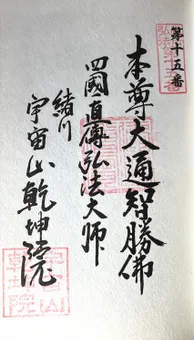 第十五番
本尊大通智勝佛
四國直傳弘法大师
緒川
宇宙山乾坤院